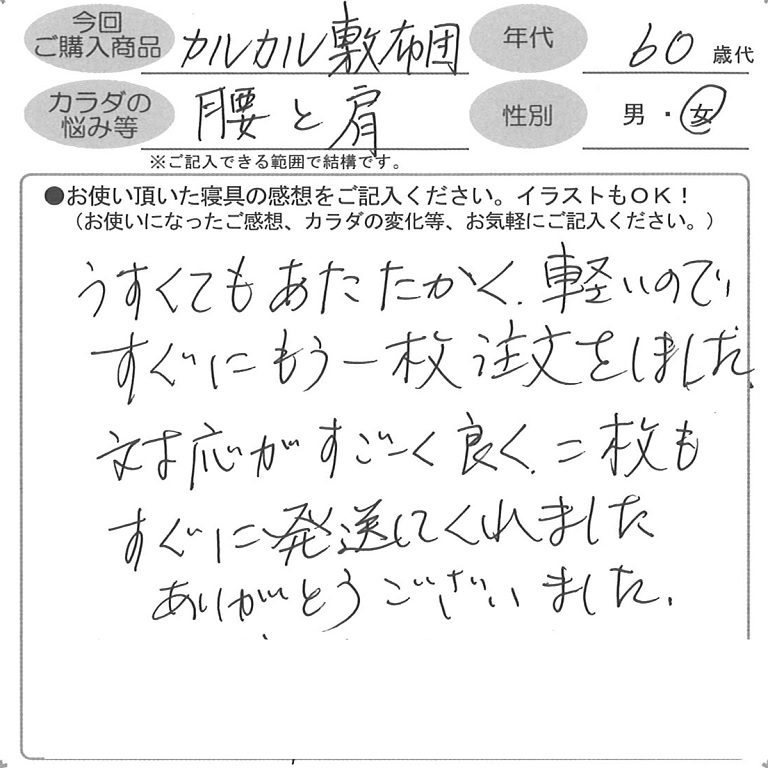 今回
ご購入商品
カルカル敷布団
年代
60歳代
カラダの
悩み等
腰と肩
性別
男・女
※ご記入できる範囲で結構です。
●お使い頂いた寝具の感想をご記入ください。イラストもOK！
（お使いになったご感想、カラダの変化等、お気軽にご記入ください。）
うすくてもあたたかく、軽いので、
すぐにもう一枚注文をしました。
対応がすごーく良く、二枚も
すぐに発送してくれました
ありがとうございました。